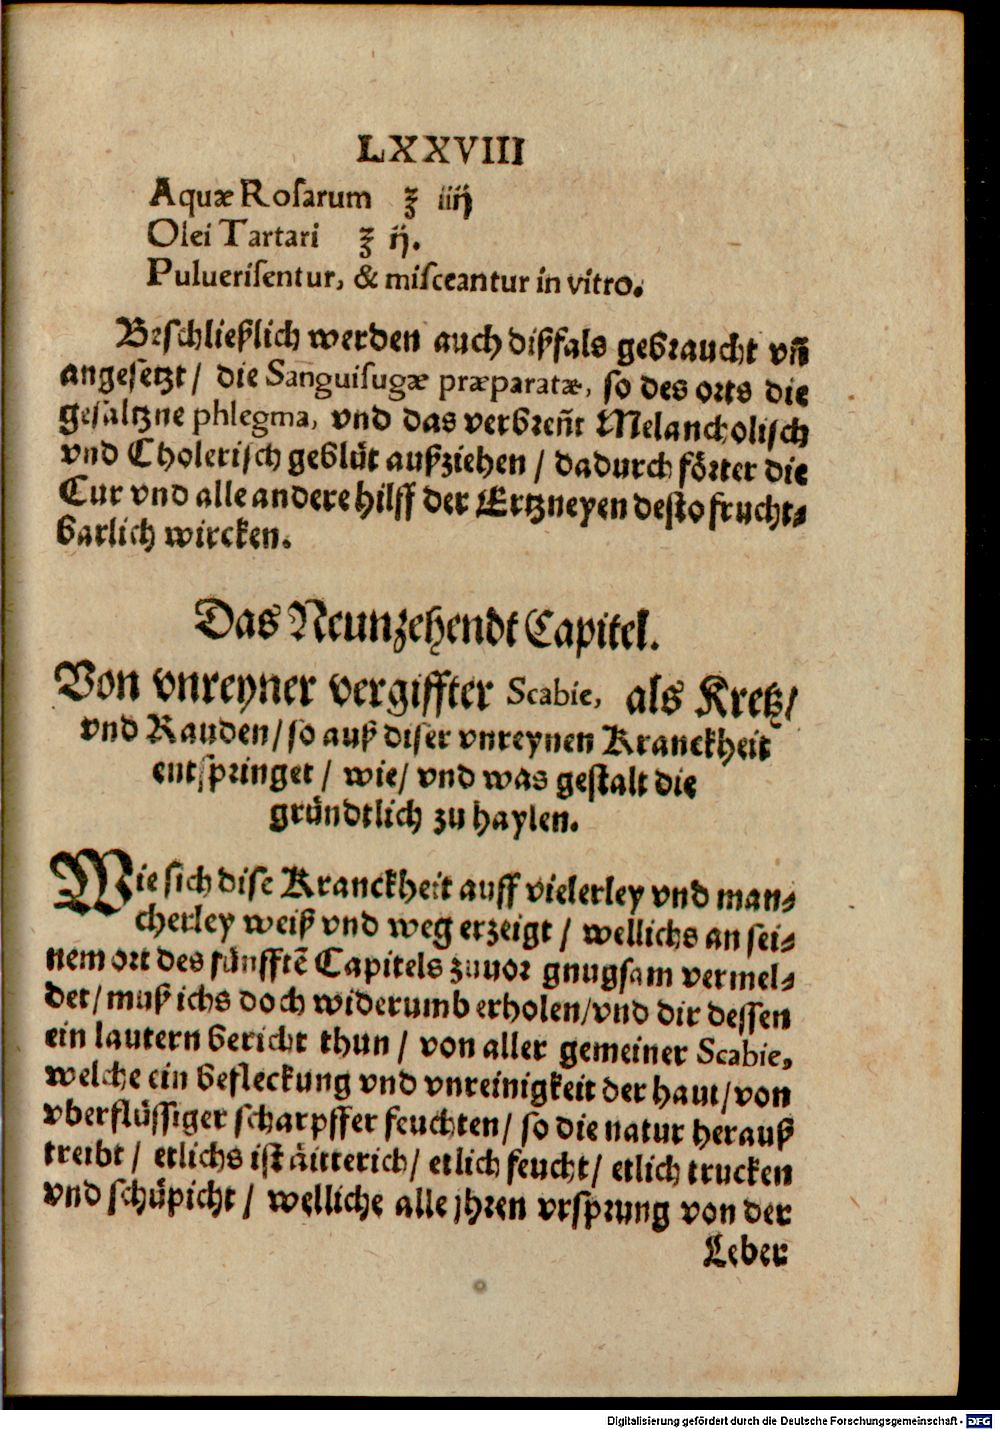 LXXVIII
Aquæ Roſarum ℥ iiij
Olei Tartari ℥ ij.
Pulueriſentur, & miſceantur in vitro.
Beſchließlich werden auch dißfals gebraucht vñ
angeſetzt / die Sanguiſugæ præparatæ, ſo des orts die
geſaltzne phlegma, vnd das verbreñt Melancholiſch
vnd Choleriſch geblüt außziehen / dadurch förter die
Cur vnd alle andere hilff der Ertzneyen deſto frucht⸗
barlich wircken.
Das Neunzehendt Capitel.
Von vnreyner vergiffter Scabie, als Kretz/
vnd Rauden / ſo auß diſer vnreynen Kranckheit
entſpringet / wie / vnd was geſtalt die
gründtlich zu haylen.
Wie ſich diſe Kranckheit auff vielerley vnd man⸗
cherley weiß vnd weg erzeigt / wellichs an ſei⸗
nem ort des fünfftẽ Capitels zuuor gnugſam vermel⸗
det / muß ichs doch widerumb erholen / vnd dir deſſen
ein lautern bericht thun / von aller gemeiner Scabie,
welche ein befleckung vnd vnreinigkeit der haut / von
vberflüſſiger ſcharpffer feuchten / ſo die natur herauß
treibt / etlichs iſt äitterich / etlich feucht / etlich trucken
vnd ſchüpicht / welliche alle jhren vrſprung von der
Leber
Digitalisierung gefördert durch die Deutsche Forschungsgemeinschaft - DFG